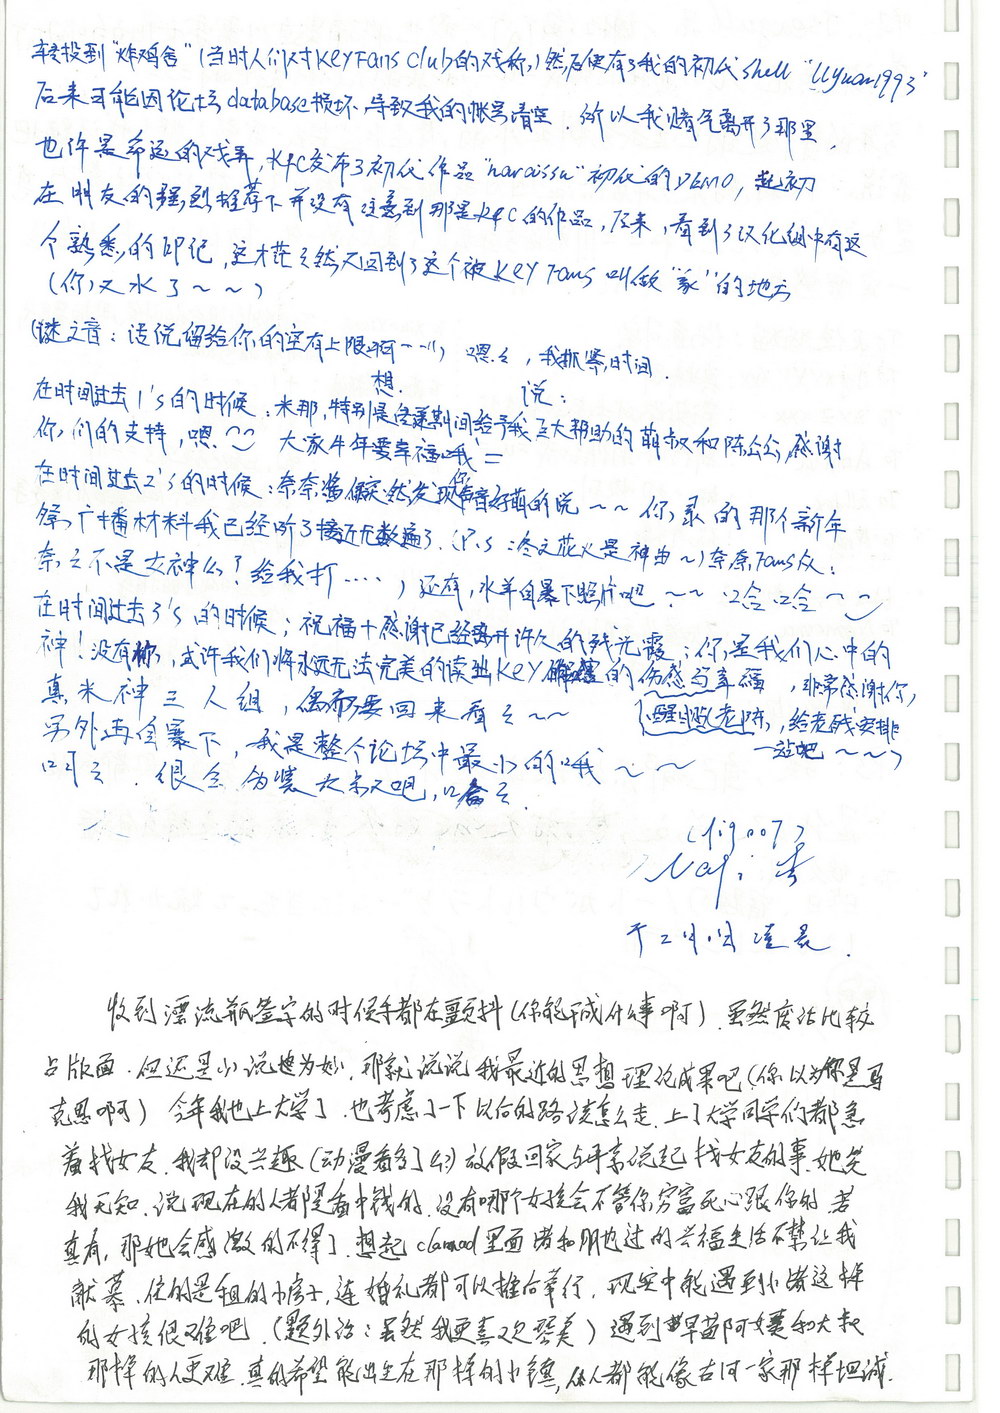 转投到"炸鸡舍"(当时人们对KeyFans club的戏称)然后便有了我的初代shell "llyuan1993"
后来可能因论坛database损坏,导致我的帐号清空.所以我赌气离开了那里.
也许是命运的戏弄,KFC发布了初代作品"narcissu"初代的DEMO,起初
在朋友的强烈推荐下并没有注意到那是KFC的作品,后来,看到了汉化组中有这
个熟悉的印记,这才茫茫然又回到了这个被KEY Fans叫做"家"的地方
(你又水了~~)
(谜之音:话说留给你的空有上限啊……),嗯々,我抓紧时间.
想. 说:
在时间过去1's的时候:米那,特别是各寒期间给予我至大帮助的萌叔和陈公公,感谢
你们的支持,嗯 大家牛年要幸福哦=
在时间过去2's的时候:奈奈酱你突然发现你声音好萌的说~~你录的那个新年
祭广播材料我已经听了接近无数遍了.(P.S:冬之花火是神曲~)奈奈Fans众:
奈々不是女神么?给我打……)还有,水羊自暴下照片吧~~哈哈~
在时间过去3's的时候;祝福+感谢已经离开许久的残光霞;你是我们心中的
神!没有你,或许我们将永远无法完美的读出KEY 的伤感与幸福,非常感谢你,
真米神三人组,偶而要回来看々~~ 醒目敬老院,给老残安排
另外再自暴下,我是整个论坛中最小的哦~~ 一站吧~~~)
口可々.很会伪装大叔吧,哈々.
于2月1日凌晨.
收到漂流瓶签字的时候手都在颤抖(你能干成什么事啊).虽然废话比较
占版面.但还是小说也为妙,那就说说我最近的思想理论成果吧(你以为你是马
克思啊)今年我也上大学了,也考虑了一下以后的路该怎么走.上了大学同学们都急
着找女友.我却没兴趣(动漫看多了么?)放假回家与母亲说起找女友的事.她笑
我无知.说现在的人都是看中钱的.没有哪个女孩会不管你穷富死心跟你的.若
真有,那她会感激的不得了.想起clannad里面渚和朋也过的幸福生活不禁让我
献慕.住的是租的小房子,连婚礼都可以推后举行.现实中能遇到小渚这样
的女孩很难吧.(题外话:虽然我更喜欢琴美)遇到早苗阿姨和大叔
那样的人更难.真的希望能出生在那样的小镇,人人都能像古河一家那样坦诚.